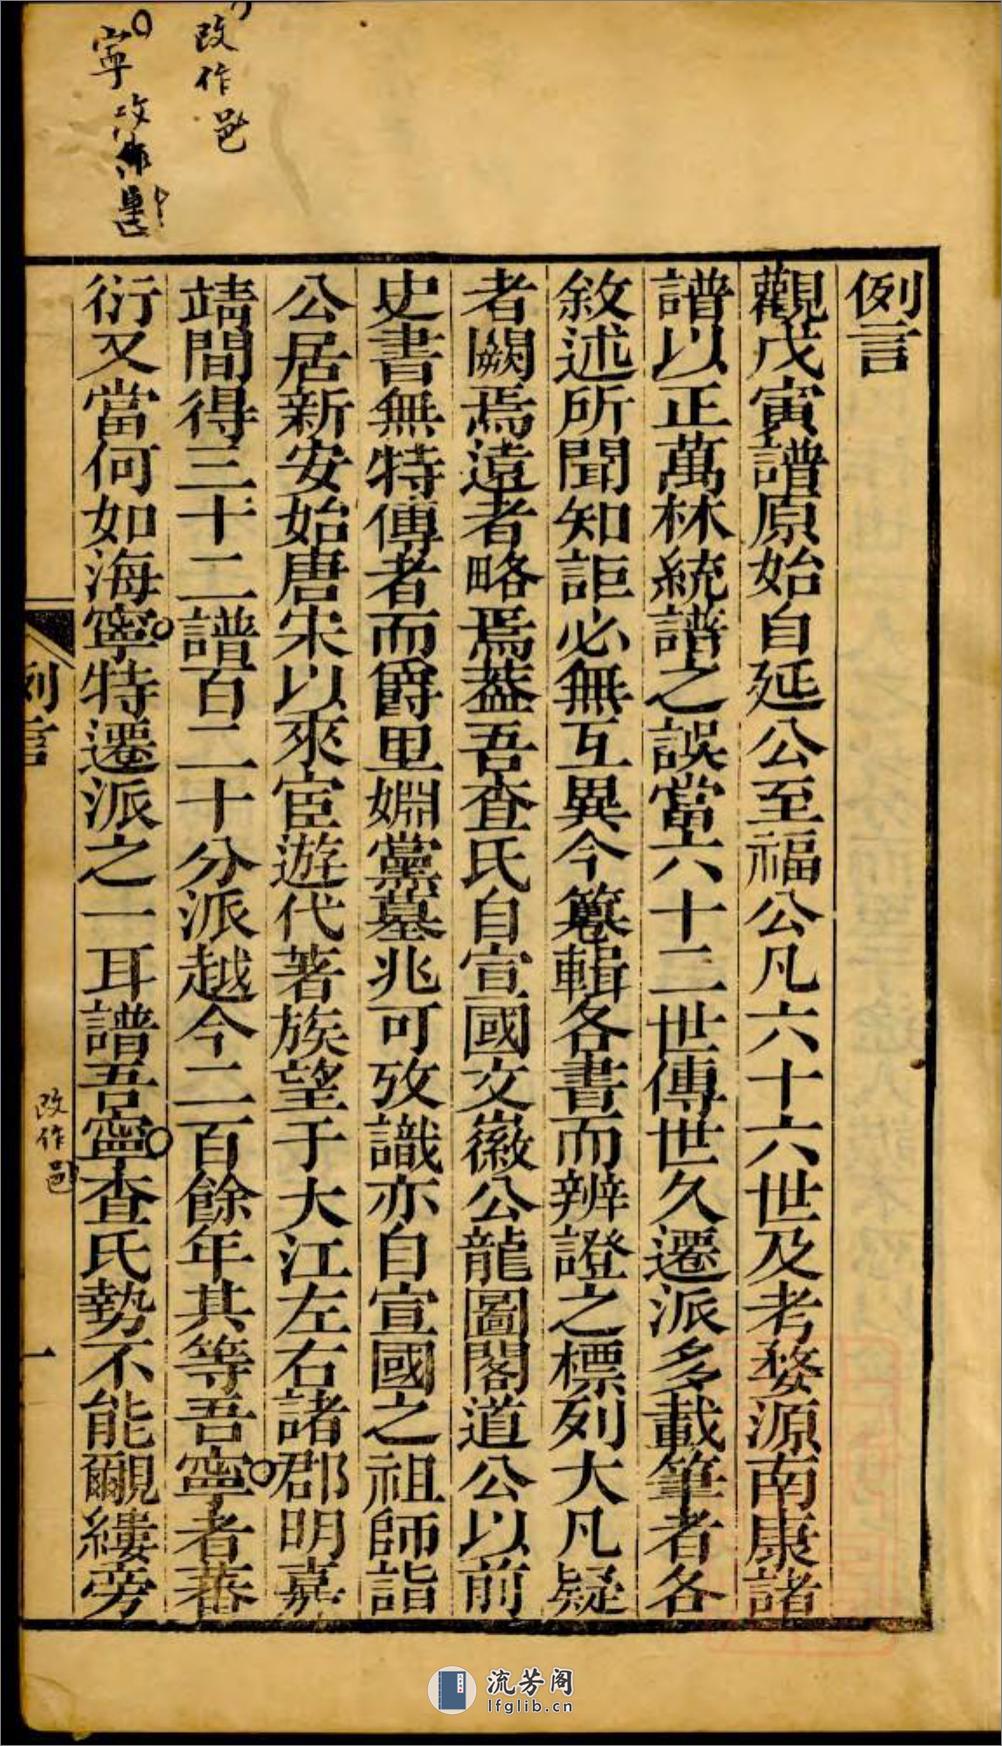 例言
觀戊寅譜原始自延公至福公凡六十六世及考婺源南康諸
譜以正萬林統譜之誤當六十二世傳世久遷派多載筆者各
敘述所聞知詎必無互異今篹輯各書而辨證之標列大凡疑
者闕焉遠者略焉葢吾查氏自宣國文徽公龍圖閣道公以前
史書無特傳者而爵里婣黨墓兆可攷識亦自宣國之祖師詣
公居新安始唐宋以來宦遊代著族望于大江左右諸郡明嘉
靖間得三十二譜百二十分派越今二百餘年其等吾寧者蕃
衍又當何如海寧特遷派之一耳譜吾寧查氏勢不能覼縷旁
例言
一
改作邑
寧改作
改作邑
流芳阁
lfglib.cn